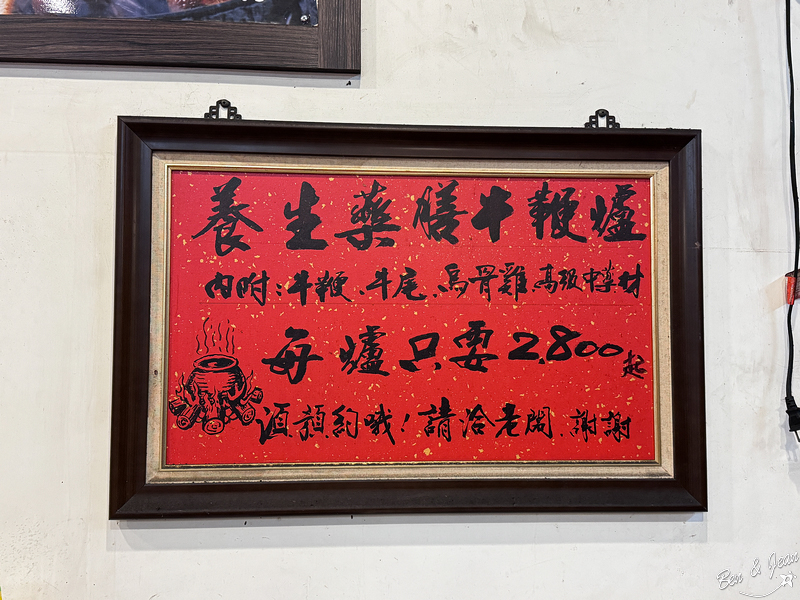 養生藥膳牛鞭爐
內附:牛鞭.牛尾.烏骨雞.高級中藥材
每爐只要2,800起
須預約哦!請洽老闆.謝謝
Ben & Jean